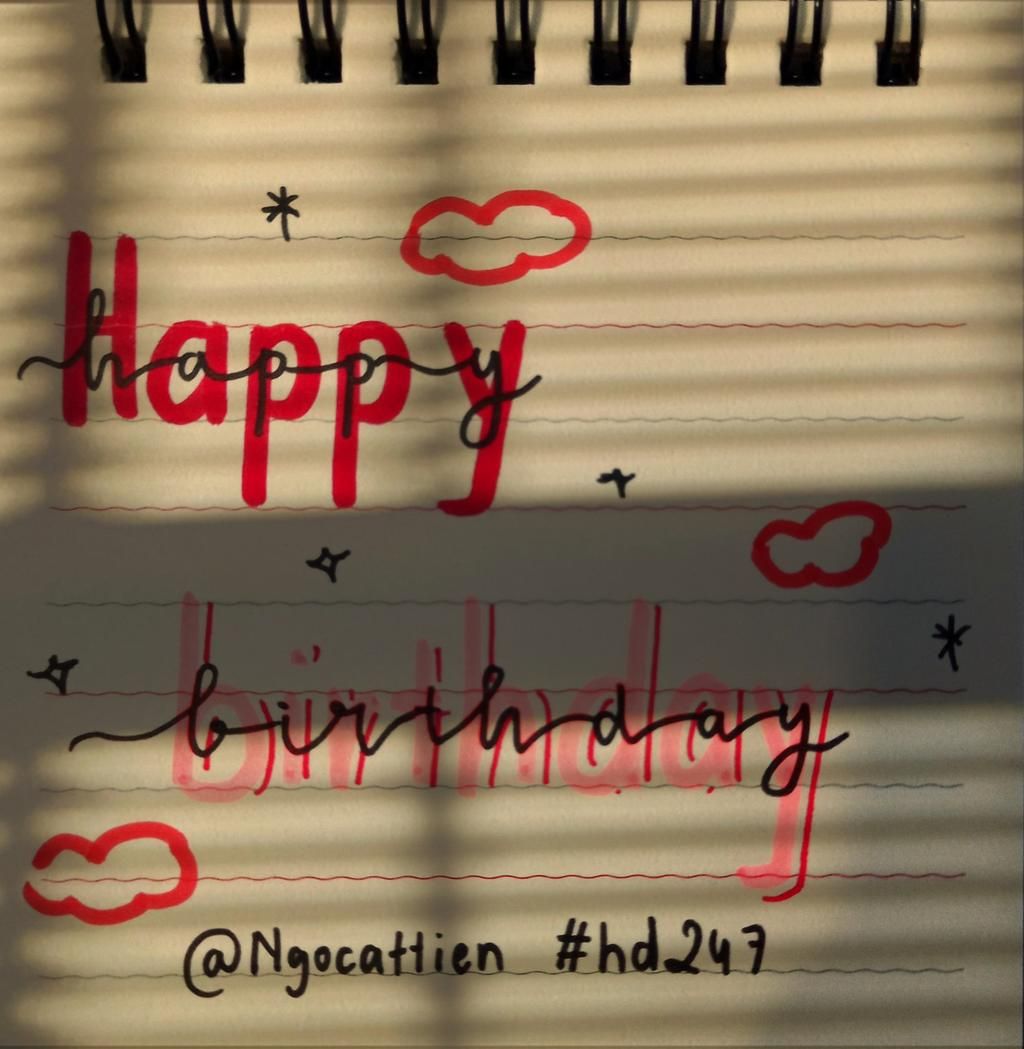 Happy
happy
birthday
birthday
@Ngocattien #hd247